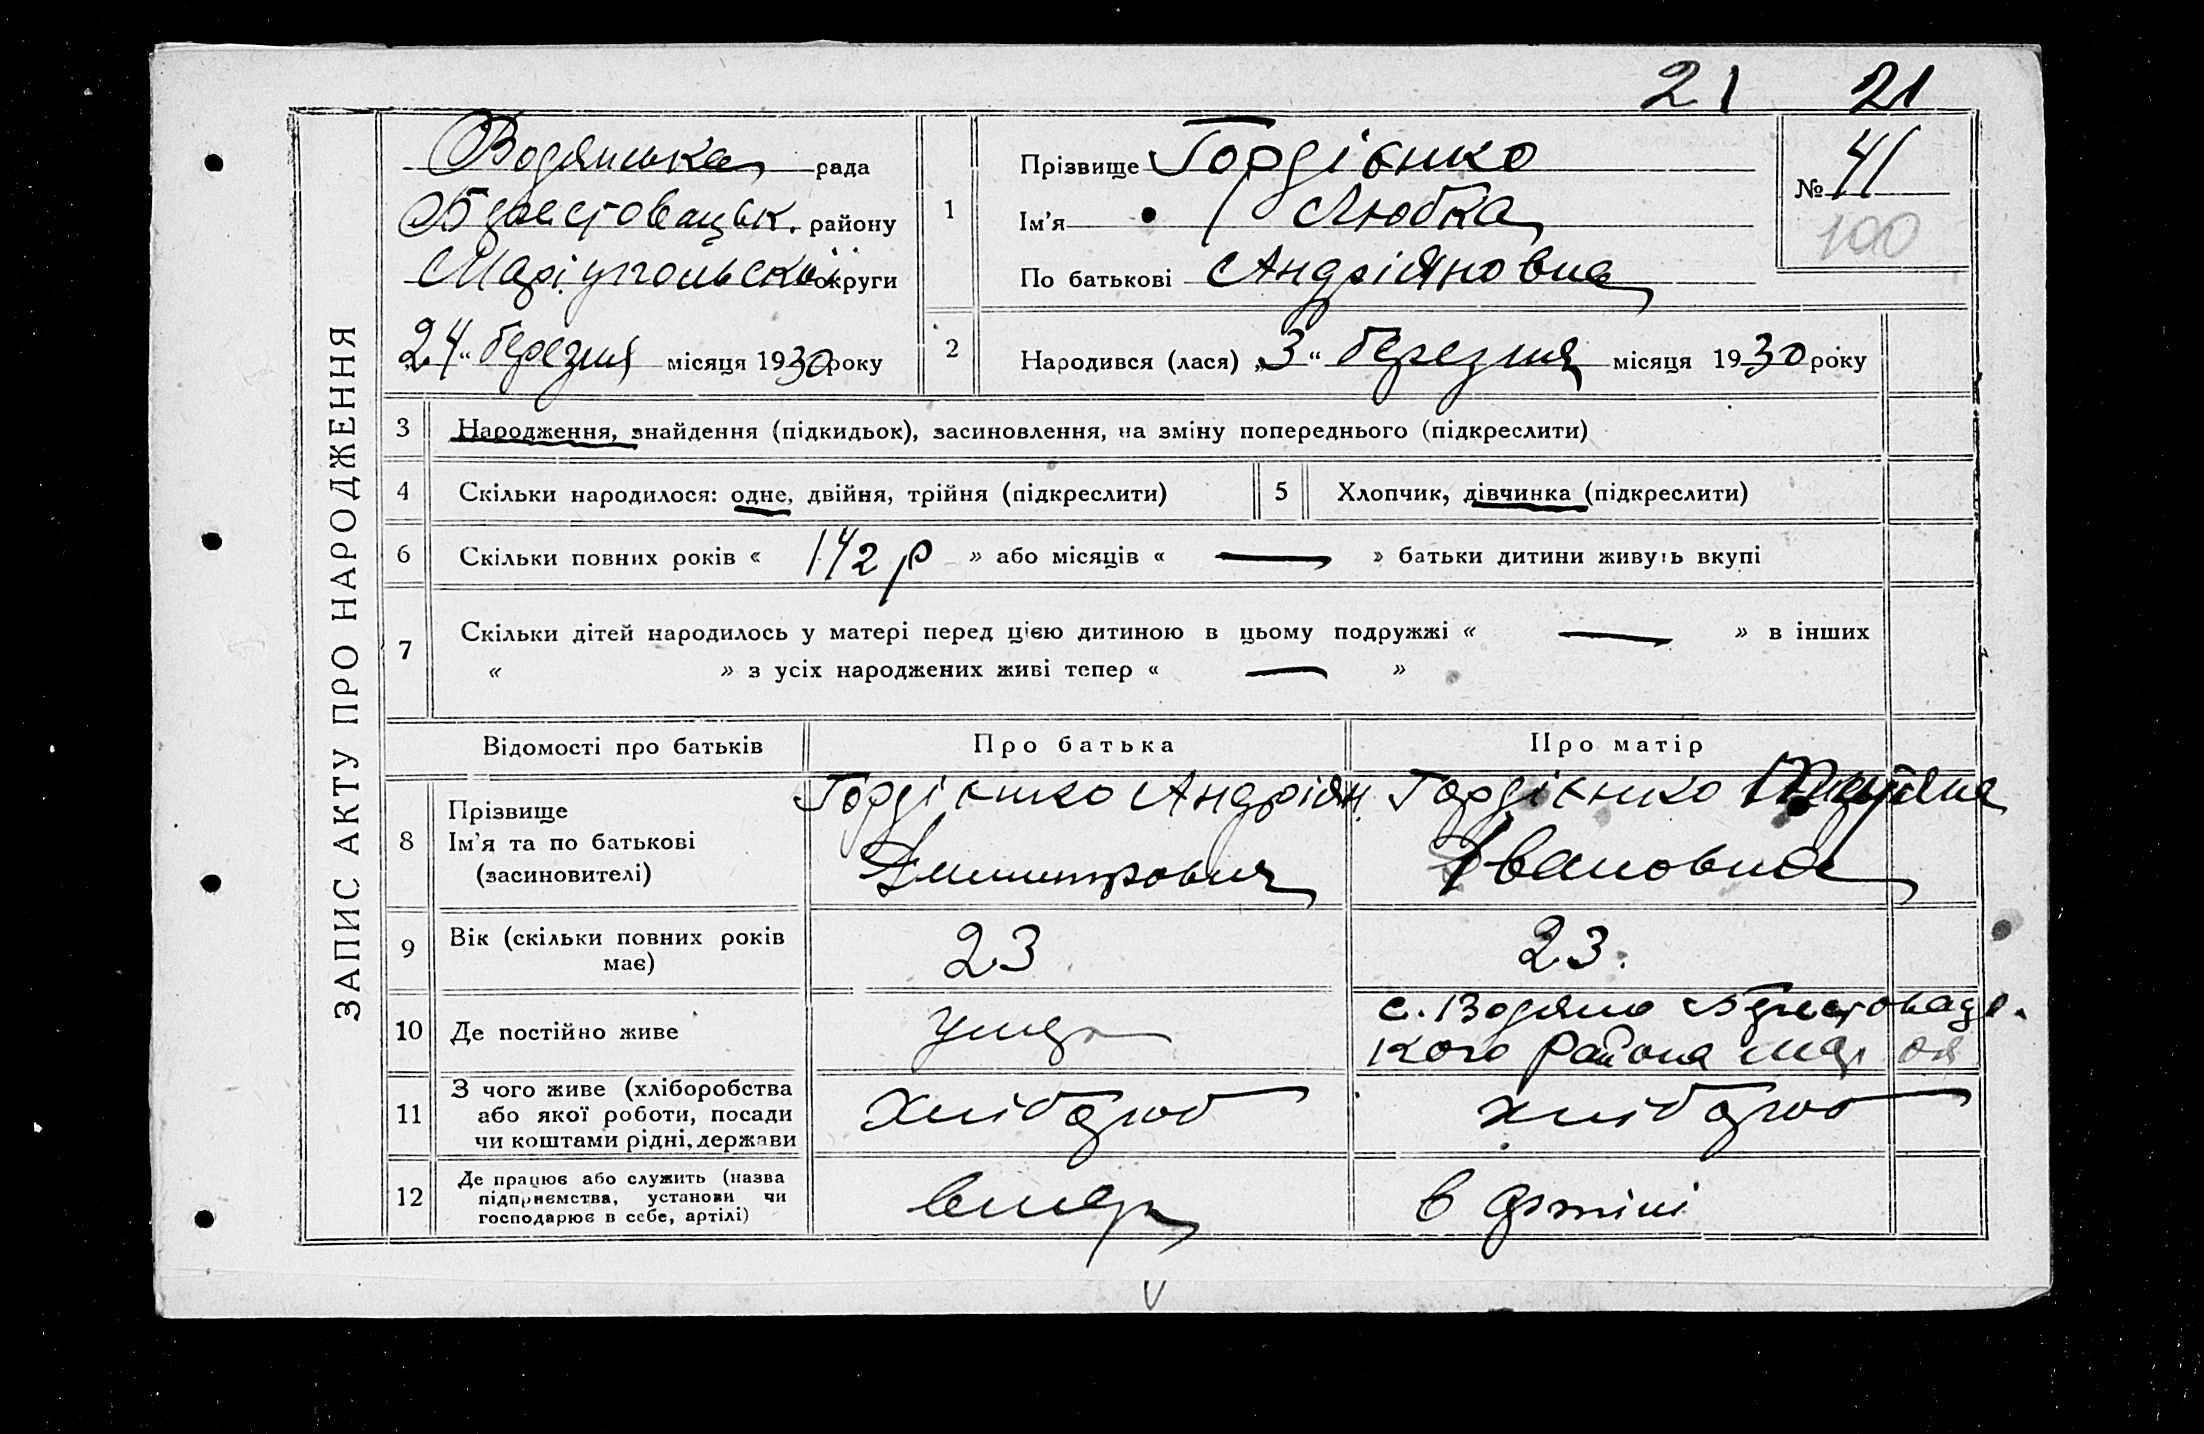 21 21
ЗАПИС АКТУ ПРО НАРОДЖЕННЯ
Водянська рада
Берестовацьк. району
Маріупольської округи
„24“ березня місяця 1930 року
1
Прізвище Гордієнко
Ім’я Любка
По батькові Андріяновна
№ 41
100
2
Народився (лася) „3“ березня місяця 1930 року
3 Народження, знайдення (підкидьок), засиновлення, на зміну попереднього (підкреслити)
4 Скільки народилося: одне, двійня, трійня (підкреслити)
5 Хлопчик, дівчинка (підкреслити)
6 Скільки повних років « 1 1/2 р » або місяців « — » батьки дитини живуть вкупі
7 Скільки дітей народилось у матері перед цією дитиною в цьому подружжі « — » в інших
« » з усіх народжених живі тепер « — »
Відомості про батьків Про батька Про матір
8
Прізвище
Ім’я та по батькові
(засиновителі)
Гордієнко Андріян
Димитрович
Гордієнко
Івановна
9
Вік (скільки повних років
має)
23
23.
10 Де постійно живе
умер
с. Водяно Берестовадс.
кого района
11
З чого живе (хліборобства
або якої роботи, посади
чи коштами рідні, держави
Хлібороб
хлібороб
12
Де працює або служить (назва
підприємства, установи чи
господарює в себе, артілі)
вмер
в артілі
V